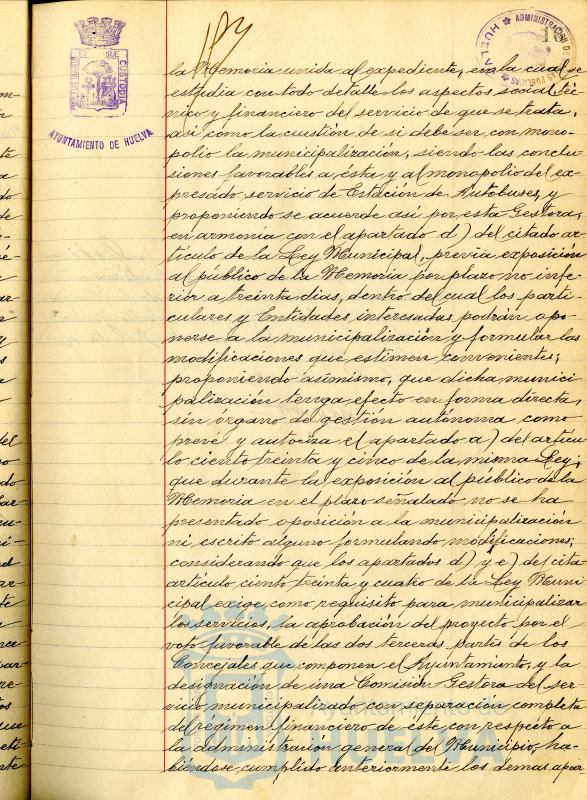 AYUNTAMIENTO DE HUELVA
ADMINISTRACIÓN DE
HUELVA
la Memoria unida al expediente, en la cual se
estudia con todo detalle los aspectos social, téc
nico y financiero del servicio de que se trata,
asi como la cuestión de si debe ser, con mono-
polio la municipalización, siendo las conclu-
siones favorables a ésta y al monopolio del ex-
presado servicio de Estación de Autobuses, y
proponiendo se acuerde asi por esta Gestora,
en armonia con el apartado d) del citado ar-
tículo de la Ley Municipal, previa exposición
al público de la Memoria por plazo no infe-
rior a treinta dias, dentro del cual los parti-
culares y Entidades interesadas podrán opo-
nerse a la municipalización y formular las
modificaciones que estimen convenientes;
proponiendo asímismo, que dicha munici
palización tenga efecto en forma directa,
sin órgano de gestión autónoma como
prevé y autoriza el apartado a) del artícu-
lo ciento treinta y cinco de la misma Ley;
que durante la exposición al público de la
Memoria en el plazo señalado no se ha
presentado oposición a la municipalización
ni escrito alguno formulando modificaciones;
considerando que los apartados d) y e) del cita-
artículo ciento treinta y cuatro de la Ley Muni
cipal exige como requisito para municipalizar
los servicios, la aprobación del proyecto por el
voto favorable de las dos terceras partes de los
Concejales que componen el Ayuntamiento, y la
designación de una Comisión Gestora del ser-
vicio municipalizado con separación completa
del régimen financiero de éste con respecto a
la administracion general del Municipio; ha-
biéndose cumplido anteriormente los demas apar
HUELVA